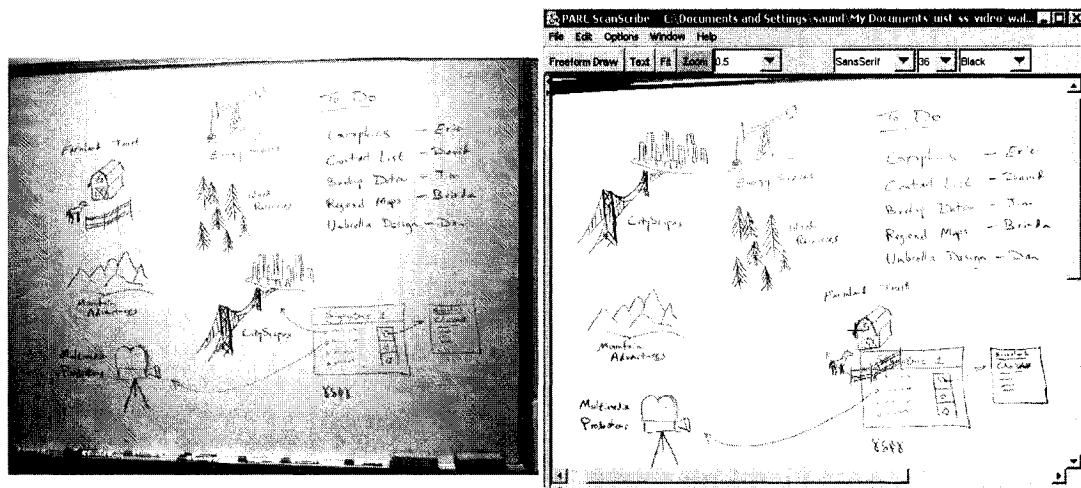 To Do
Graphics - Eric
Contact List - David
Bndry Data - Jim
Regional Maps - Brinda
Umbrella Design - Dan
Farmland Trust
Energy Sources
Wood
Resources
Mountain
Advantages
CityScapes
Multimedia
Productions
PARC ScanScribe C:\Documents and Settings\saund\My Documents\uist_ss_video\wal...
File Edit Options Window Help
Freeform Draw Text Fit Zoom 0.5 SansSerif 36 Black
To Do
Graphics - Eric
Contact List - David
Bndry Data - Jim
Regional Maps - Brinda
Umbrella Design - Dan
Energy Sources
CityScapes
Wood
Resources
Farmland Trust
Mountain
Advantages
Multimedia
Productions